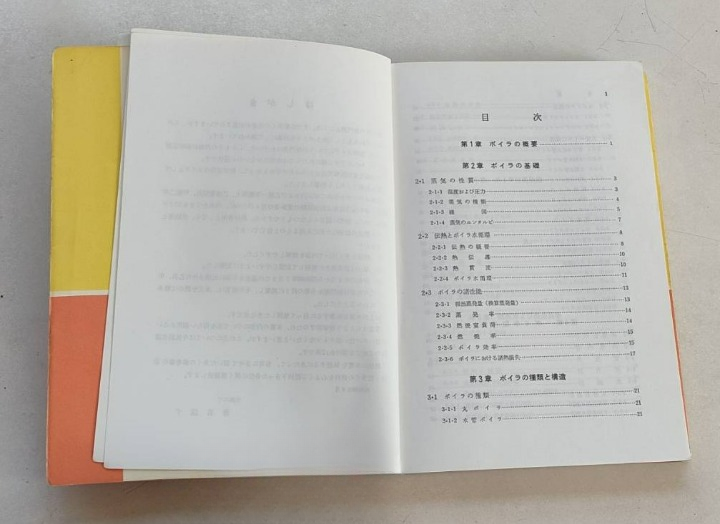 1
目 次
第1章 ボイラの概要 1
第2章 ボイラの基礎
2・1 蒸気の性質 3
2-1-1 温度および圧力 3
2-1-2 蒸気の種類 4
2-1-3 5
2-1-4 蒸気のエンタルピ 7
伝熱とボイラ水循環 8
2-2-1 伝熱の概要 8
2-2-2 熱伝導 9
2-2-3 熱貫流 10
2-2-4 ボイラ水循環 11
2・3 ボイラの諸性能 13
2-3-1 換算蒸発量 13
2-3-2 蒸発率 14
2-3-3 燃焼室負荷 14
2-3-4 燃焼率 14
2-3-5 ボイラ効率 15
2-3-6 ボイラにおける諸熱損失 17
第3章 ボイラの種類と構造
3・1 ボイラの種類 21
3-1-1 丸ボイラ 21
3-1-2 水管ボイラ 21